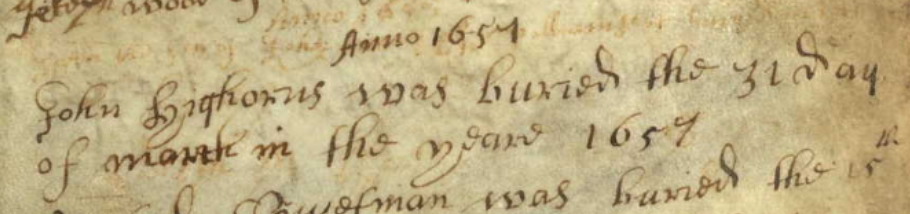 Anno 1657
John Highorns was buried the 31 day
of march in the yeare 1657
was buried the 15th